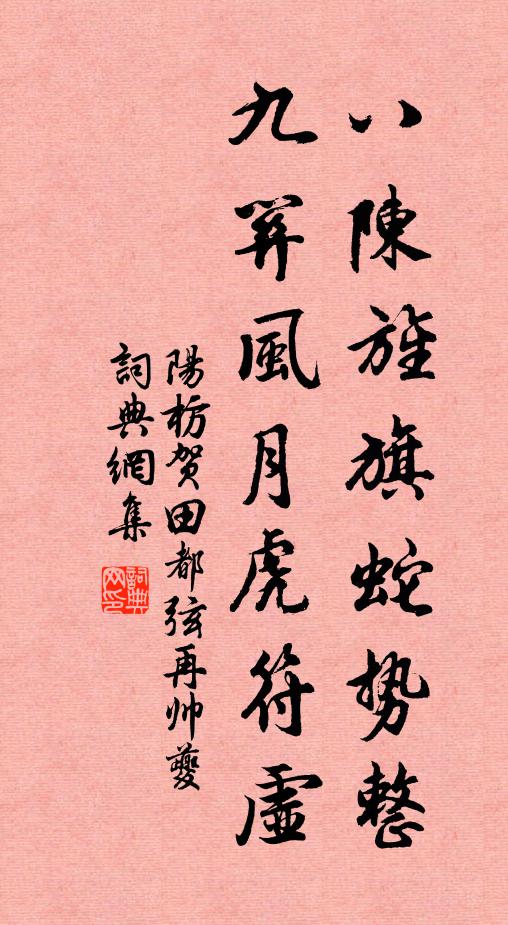 八陳旌旗蛇势整
九筭風月虎符虛
陽枋贺田都弦再帅夔
詞典網集
詞典網印